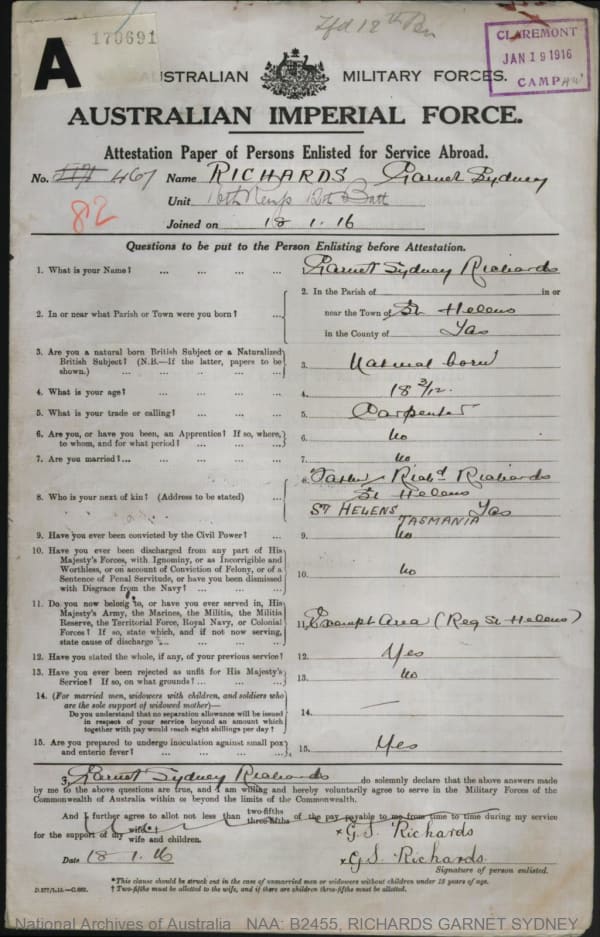 A
170691
Tfd 12th Bn
CLAREMONT
JAN 19 1916
CAMP
AUSTRALIAN MILITARY FORCES.
AUSTRALIAN IMPERIAL FORCE.
Attestation Paper of Persons Enlisted for Service Abroad.
No. 467 Name RICHARDS Garnet Sydney
82
Unit 16th Reinfs Batt
Joined on 18 1. 16
Questions to be put to the Person Enlisting before Attestation.
1. What is your Name? ... ... ... ... Garnet Sydney Richards
2. In or near what Parish or Town were you born? ...
2. In the Parish of in or
near the Town of St Helens
in the County of Tas
3. Are you a natural born British Subject or a Naturalized
British Subject? (N.B.—If the latter, papers to be
shown.) ... ... ... ... ...
3. Natural born
4. What is your age? ... ... ... ... 4. 18 2/12.
5. What is your trade or calling? ... ... ... 5. Carpenter
6. Are you, or have you been, an Apprentice? If so, where,
to whom, and for what period? ... ... ...
6. No
7. Are you married?... ... ... ... ... 7. No
8. Who is your next of kin? (Address to be stated) ...
8. Father Richd Richards
St Helens
ST HELENS Tas
TASMANIA
9. Have you ever been convicted by the Civil Power? ... 9. No
10. Have you ever been discharged from any part of His
Majesty's Forces, with Ignominy, or as Incorrigible and
Worthless, or on account of Conviction of Felony, or of a
Sentence of Penal Servitude, or have you been dismissed
with Disgrace from the Navy? ... ... ...
10. No
11. Do you now belong to, or have you ever served in, His
Majesty's Army, the Marines, the Militia, the Militia
Reserve, the Territorial Force, Royal Navy, or Colonial
Forces? If so, state which, and if not now serving,
state cause of discharge ... ... ...
11. Exempt Area (Reg St Helens)
12. Have you stated the whole, if any, of your previous service? 12. Yes
13. Have you ever been rejected as unfit for His Majesty's
Service? If so, on what grounds? ... ... ...
13. No
14. (For married men, widowers with children, and soldiers who
are the sole support of widowed mother)—
Do you understand that no separation allowance will be issued
in respect of your service beyond an amount which
together with pay would reach eight shillings per day?
14. —
15. Are you prepared to undergo inoculation against small pox
and enteric fever? ... ... ... ...
15. Yes
I, Garnet Sydney Richards do solemnly declare that the above answers made
by me to the above questions are true, and I am willing and hereby voluntarily agree to serve in the Military Forces of the
Commonwealth of Australia within or beyond the limits of the Commonwealth.
And I further agree to allot not less than two-fifths three-fifths of the pay payable to me from time to time during my service
for the support of my wife*† wife and children.
x G. S. Richards
Date 18 1. 16
x G. S. Richards.
Signature of person enlisted.
*This clause should be struck out in the case of unmarried men or widowers without children under 18 years of age.
† Two-fifths must be allotted to the wife, and if there are children three-fifths must be allotted.
National Archives of Australia NAA: B2455, RICHARDS GARNET SYDNEY